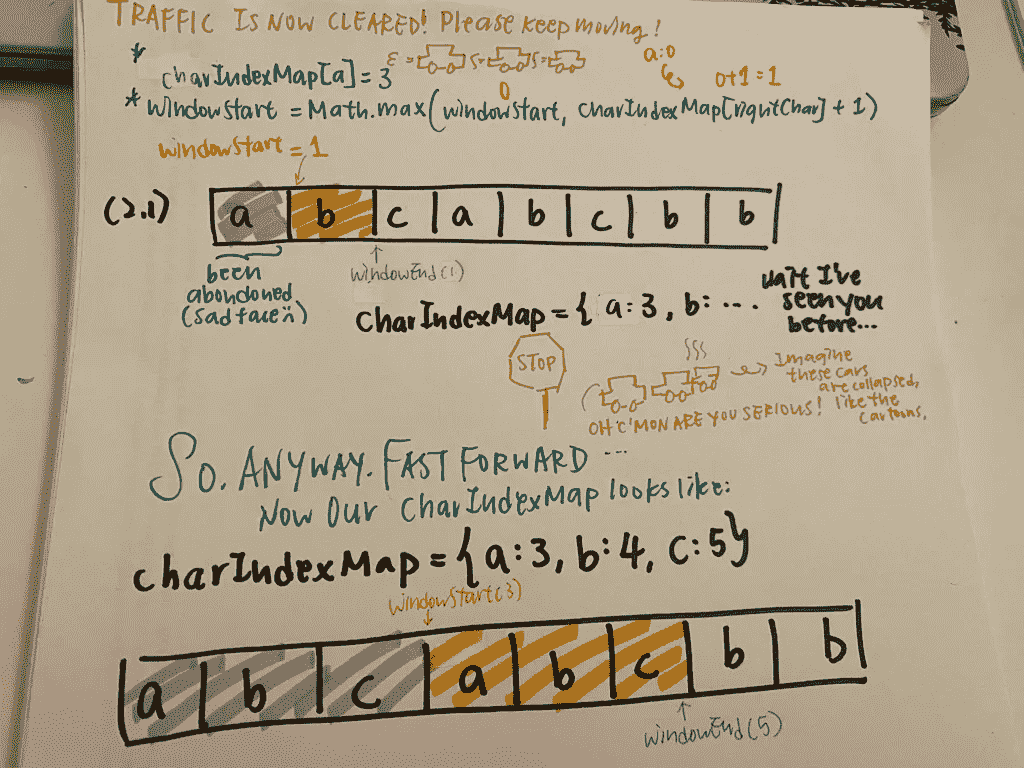 TRAFFIC IS NOW CLEARED! Please keep moving!
* charIndexMap[a] = 3
a:0
0+1=1
0
* windowStart = Math.max(windowStart, charIndexMap[rightChar] + 1)
windowStart = 1
(2.1)
a b c a b c b b
been
abondoned
(sad face
windowEnd(1)
charIndexMap = { a:3, b: ...
wait I've
seen you
before...
STOP
Imagine
these cars
are collapsed,
like the
cartoons.
OH C'MON ARE YOU SERIOUS!
SO. ANYWAY. FAST FORWARD ...
NOW OUR CharIndexMap looks like:
charIndexMap = {a:3, b:4, c:5}
windowStart(3)
a b c a b c b b
windowEnd(5)